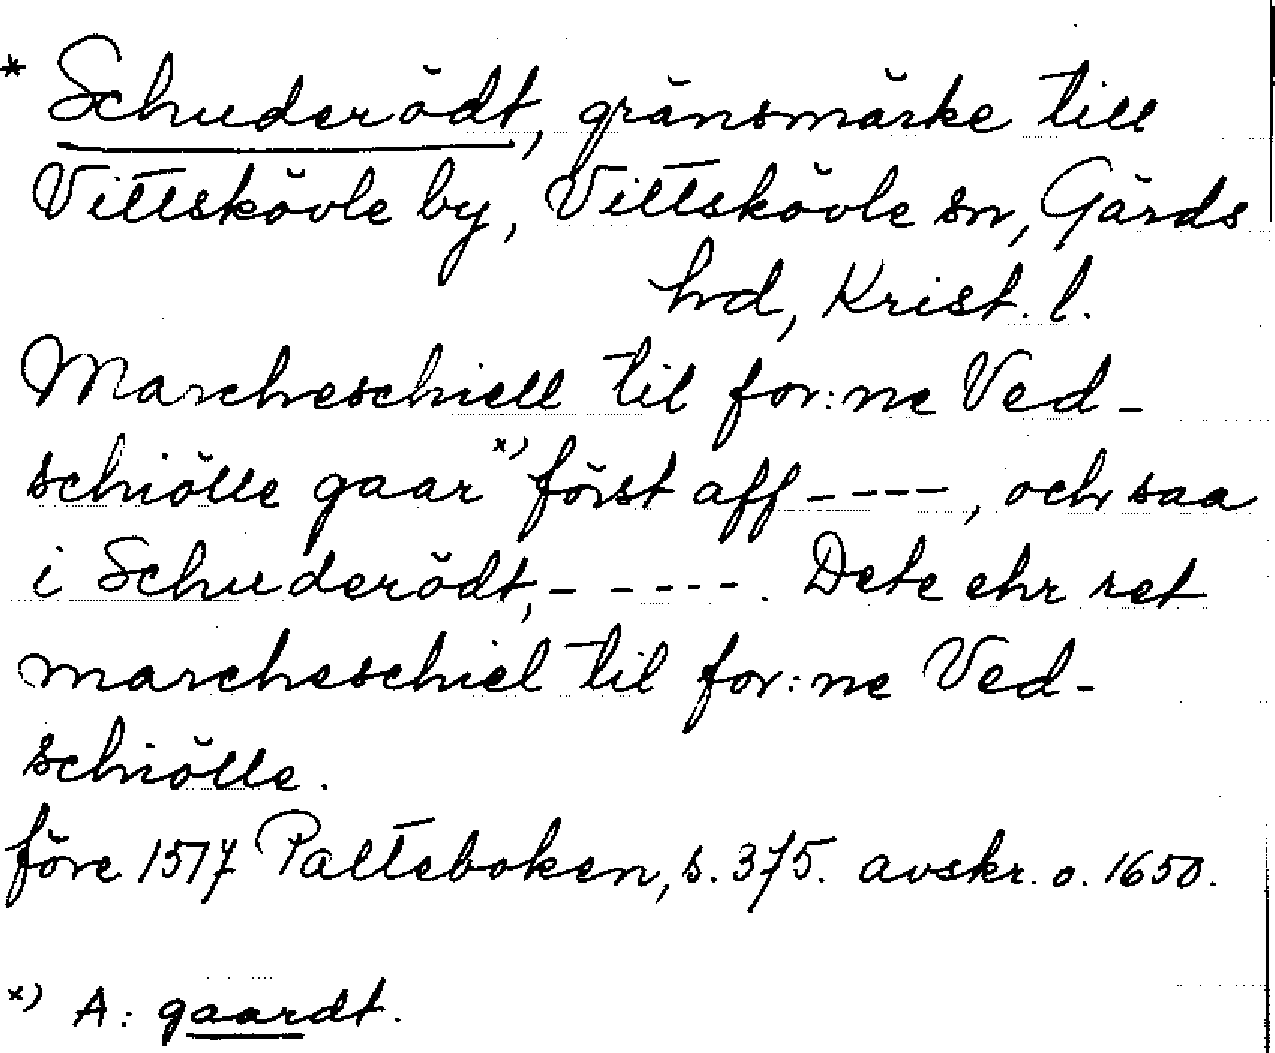 * Schuderödt, gränsmärke till
Vittskövle by, Vittskövle sn, Gärds
hd, Krist. l.
Marcheschiell til for:ne Ved-
schiölle gaar x) först aff ----, och saa
i Schuderödt, - - - - -. Dete ehr ret
marcheschiel til for:ne Ved-
schiölle.
före 1517 Palteboken, s. 375. avskr. o. 1650.
x) A: gaardt.